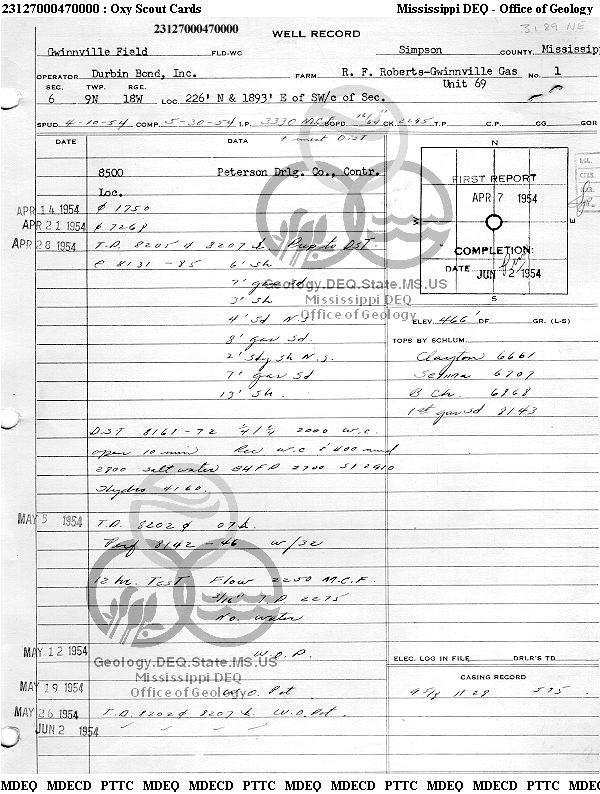 23127000470000 : Oxy Scout Cards
Mississippi DEQ - Office of Geology
23127000470000
WELL RECORD
3189 NE
Gwinnville Field FLD-WC Simpson COUNTY, Mississip
OPERATOR Durbin Bond, Inc. FARM R. F. Roberts-Gwinnville Gas Unit 69 NO. 1
SEC. TWP. RGE.
6 9N 18W LOC. 226' N & 1893' E of SW/c of Sec.
SPUD. 4-10-54 COMP. 5-30-54 I.P. 3330 M.C.F. BOPD 16/64" CK. 2295 T.P. C.P. CG. GOR
DATE DATA
8500 Peterson Drlg. Co., Contr.
Loc.
APR 14 1954 @ 1750
APR 21 1954 @ 7268
APR 28 1954 T.D. 8205 @ 8207 L. Prep to DST.
@ 8131 - 85 6' Sh
7' gas sd
3' sh
4' Sd N.S.
8' gas sd.
2' sdy sh N.S.
7' gas sd
13' sh.
DST 8161-72 1/4 1/4 2000 W.C.
open 10 min Rec W.C & 400 mud
2800 salt water BHFP 2700 SI 2910
Hydro 4160.
MAY 5 1954 T.D. 8202 @ 07 L.
Perf 8142-46 w/32
12 hr. Test Flow 2250 M.C.F.
3/16" T.P. 2275
No. water
MAY 12 1954 W.O.P.
MAY 19 1954 W.O. Pot
MAY 26 1954 T.D. 8202 @ 8207 L. W.O. Pot.
JUN 2 1954
N
W
E
S
FIRST REPORT
APR 7 1954
COMPLETION:
DATE JUN 2 1954
ELEV. 466' DF. GR. (L-S)
TOPS BY SCHLUM.
Clayton 6661
Selma 6709
B Ch. 6868
1st gas sd 8143
ELEC. LOG IN FILE DRLR'S TD
CASING RECORD
9 5/8 1128 575
Geology.DEQ.State.MS.US
Mississippi DEQ
Office of Geology
Geology.DEQ.State.MS.US
Mississippi DEQ
Office of Geology
MDEQ MDECD PTTC MDEQ MDECD PTTC MDEQ MDECD PTTC MDEQ MDECD PTTC MDEQ MDECD